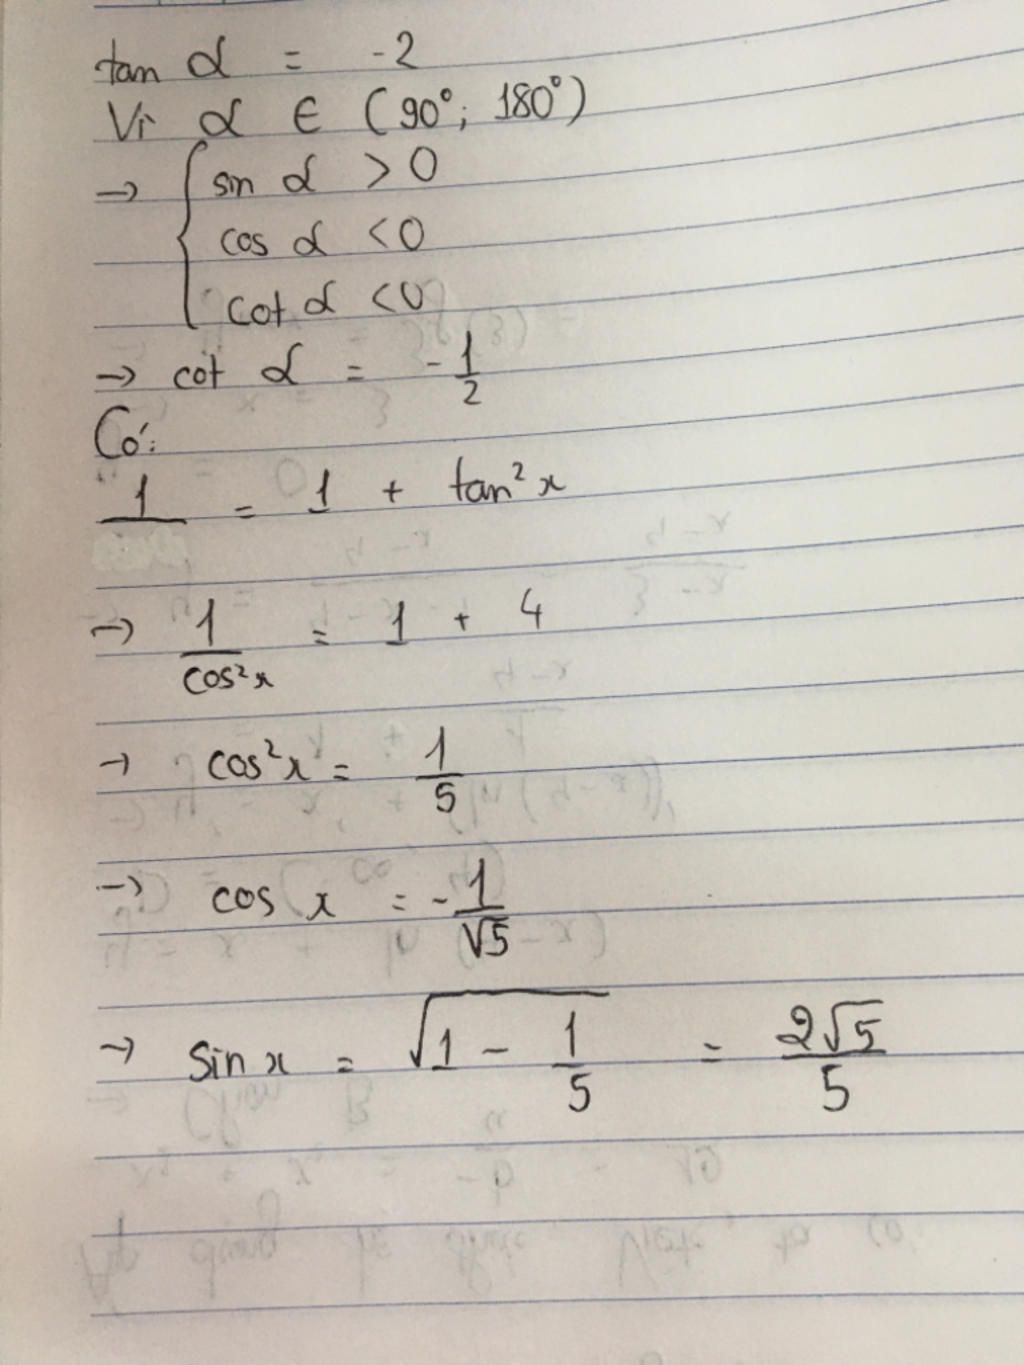 tan α = -2
Vì α ∈ (90°; 180°)
→ { sin α > 0
cos α < 0
cot α < 0
→ cot α = -1/2
Có:
1/ = 1 + tan²x
→ 1/cos²x = 1 + 4
→ cos²x = 1/5
→ cos x = -1/√5
→ sin x = √(1 - 1/5) = 2√5/5